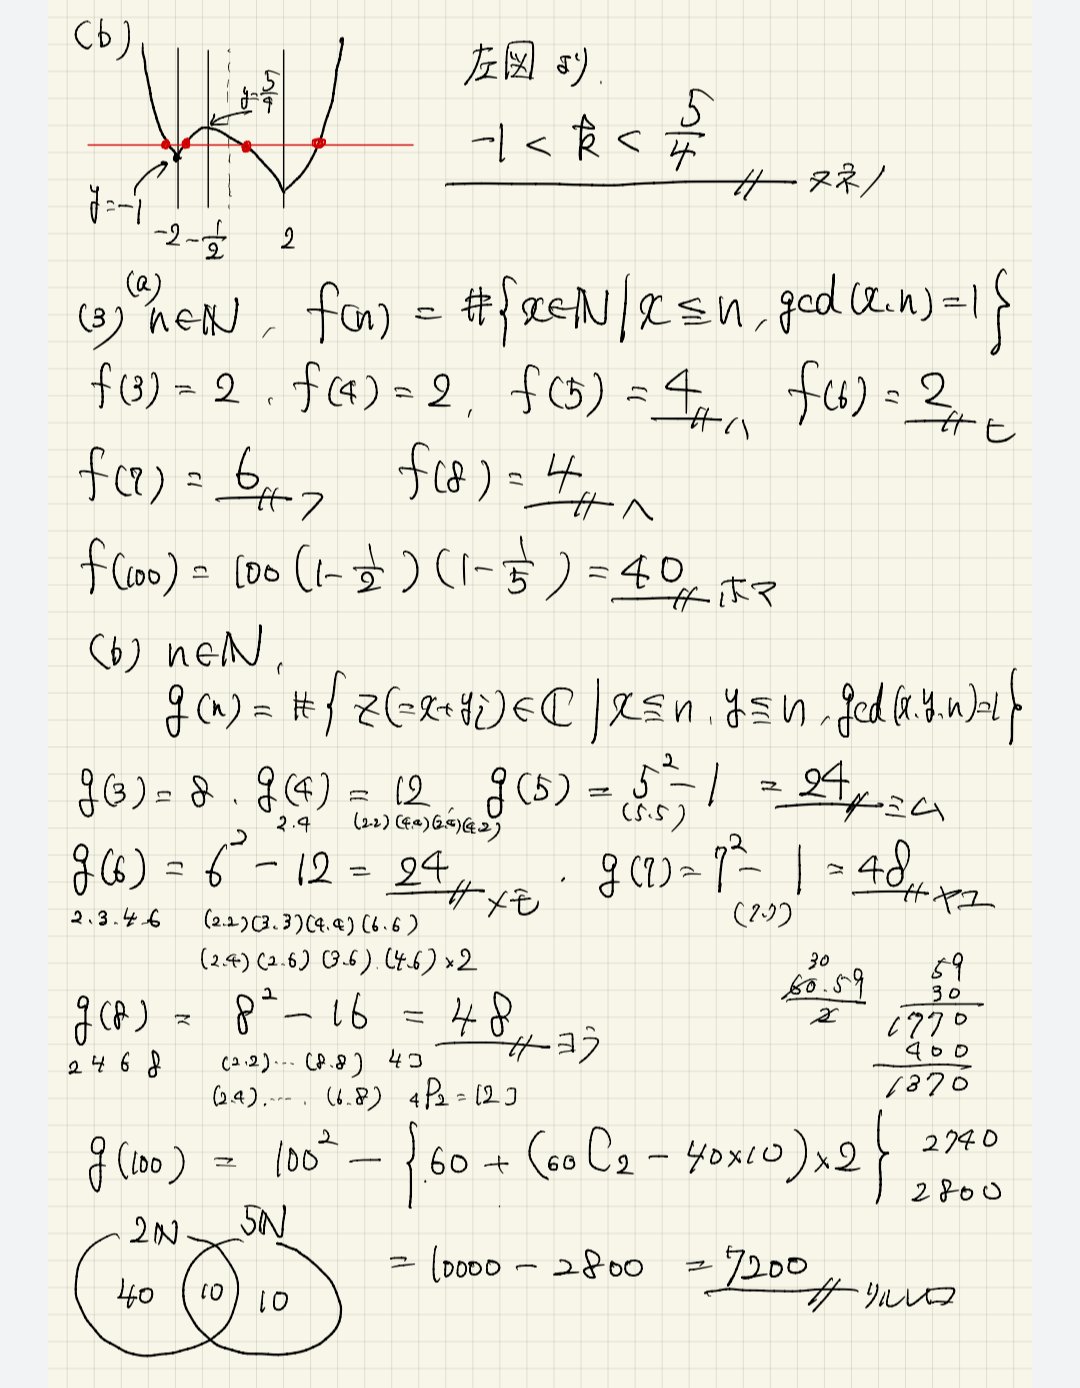 (b)
y=5/4
y=-1
-2 -1/2 2
左図より.
-1 < k < 5/4 ヌネノ
(3) (a) n∈ℕ, f(n) = #{x∈ℕ | x≦n, gcd(x.n)=1}
f(3) = 2 , f(4) = 2, f(5) = 4 ハ f(6) = 2 ヒ
f(7) = 6 フ f(8) = 4 ヘ
f(100) = 100 (1-1/2) (1-1/5) = 40 ホマ
(b) n∈ℕ,
g(n) = #{z(=x+yi)∈ℂ | x≦n, y≦n, gcd(x.y.n)=1}
g(3) = 8 . g(4) = 12 , g(5) = 5²-1 = 24 ミム
2.4 (2.2)(4.4)(2.4)(4.2) (5.5)
g(6) = 6² - 12 = 24 メモ . g(7) = 7² - 1 = 48 ヤユ
2.3.4.6 (2.2)(3.3)(4.4)(6.6) (7.7)
(2.4)(2.6)(3.6).(4.6)×2
30
60.59
2
59
30
1770
400
1370
g(8) = 8² - 16 = 48 ヨラ
2 4 6 8 (2.2)... (8.8) 4コ
(2.4)..... (6.8) ₄P₂ = 12コ
g(100) = 100² - {60 + (₆₀C₂ - 40×10)×2}
2740
2800
2ℕ 5ℕ
40 10 10
= 10000 - 2800 = 7200 リルレロ